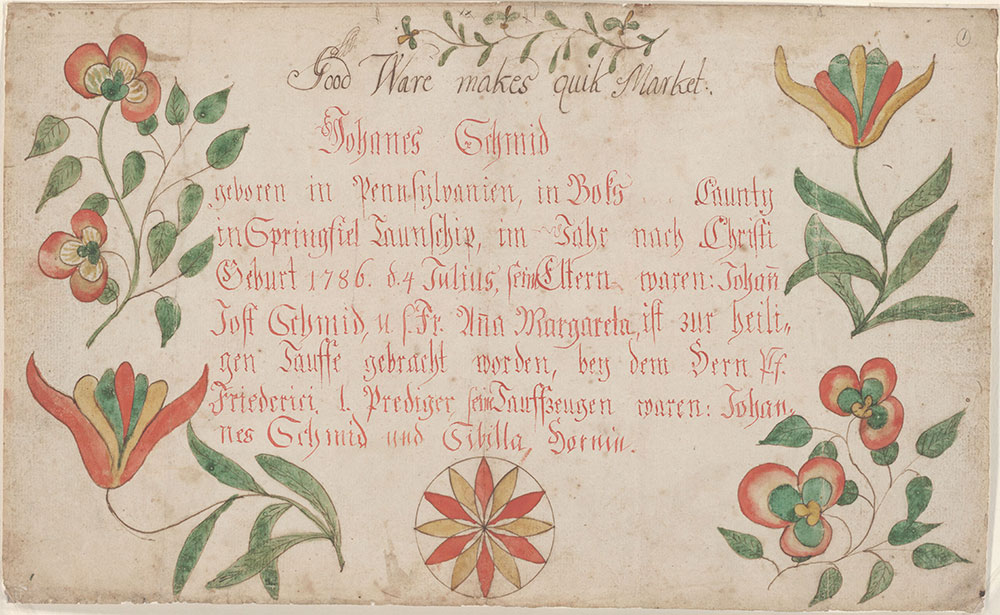 Good Ware makes quik Market.
1
Johanes Schmid
geboren in Pennsylvanien, in Boks County
in Springfiel Taunschip, im Jahr nach Christi
Geburt 1786. d. 4 Julius, sein Eltern waren: Johañ
Jost Schmid, u. s. Fr. Aña Margareta, ist zur heili,
gen Tauffe gebracht worden, bey dem Hern Pf.
Friederici, l. Prediger, sein Tauffzeugen waren: Johan,
nes Schmid und Sibilla, Hornin.